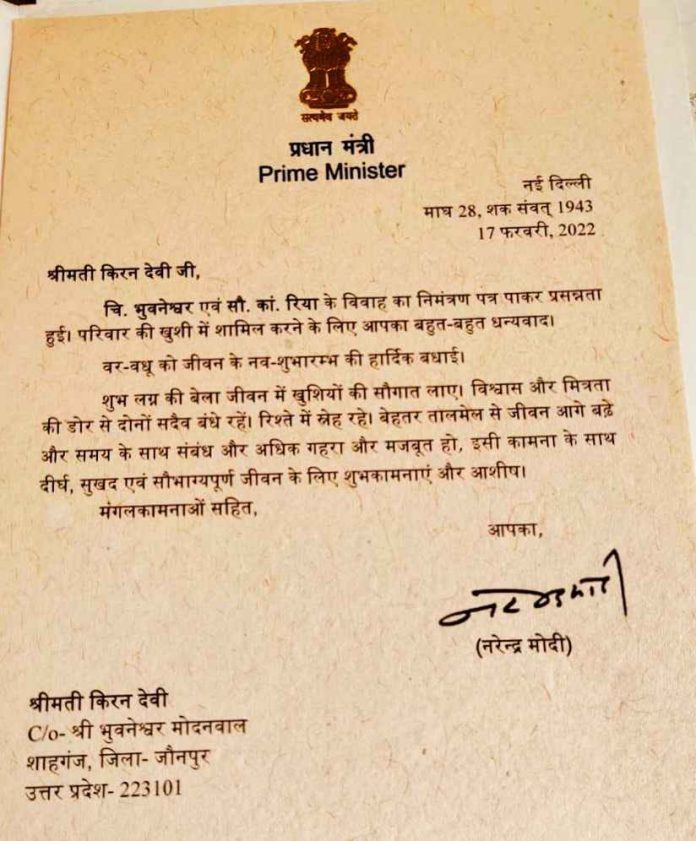 सत्यमेव जयते
प्रधान मंत्री
Prime Minister
नई दिल्ली
माघ 28, शक संवत् 1943
17 फरवरी, 2022
श्रीमती किरन देवी जी,
चि. भुवनेश्वर एवं सौ. कां. रिया के विवाह का निमंत्रण पत्र पाकर प्रसन्नता
हुई। परिवार की खुशी में शामिल करने के लिए आपका बहुत-बहुत धन्यवाद।
वर-वधू को जीवन के नव-शुभारम्भ की हार्दिक बधाई।
शुभ लग्न की बेला जीवन में खुशियों की सौगात लाए। विश्वास और मित्रता
की डोर से दोनों सदैव बंधे रहें। रिश्ते में स्नेह रहे। बेहतर तालमेल से जीवन आगे बढ़े
और समय के साथ संबंध और अधिक गहरा और मजबूत हो, इसी कामना के साथ
दीर्घ, सुखद एवं सौभाग्यपूर्ण जीवन के लिए शुभकामनाएं और आशीष।
मंगलकामनाओं सहित,
आपका,
नरेन्द्र मोदी
(नरेन्द्र मोदी)
श्रीमती किरन देवी
C/o- श्री भुवनेश्वर मोदनवाल
शाहगंज, जिला- जौनपुर
उत्तर प्रदेश- 223101